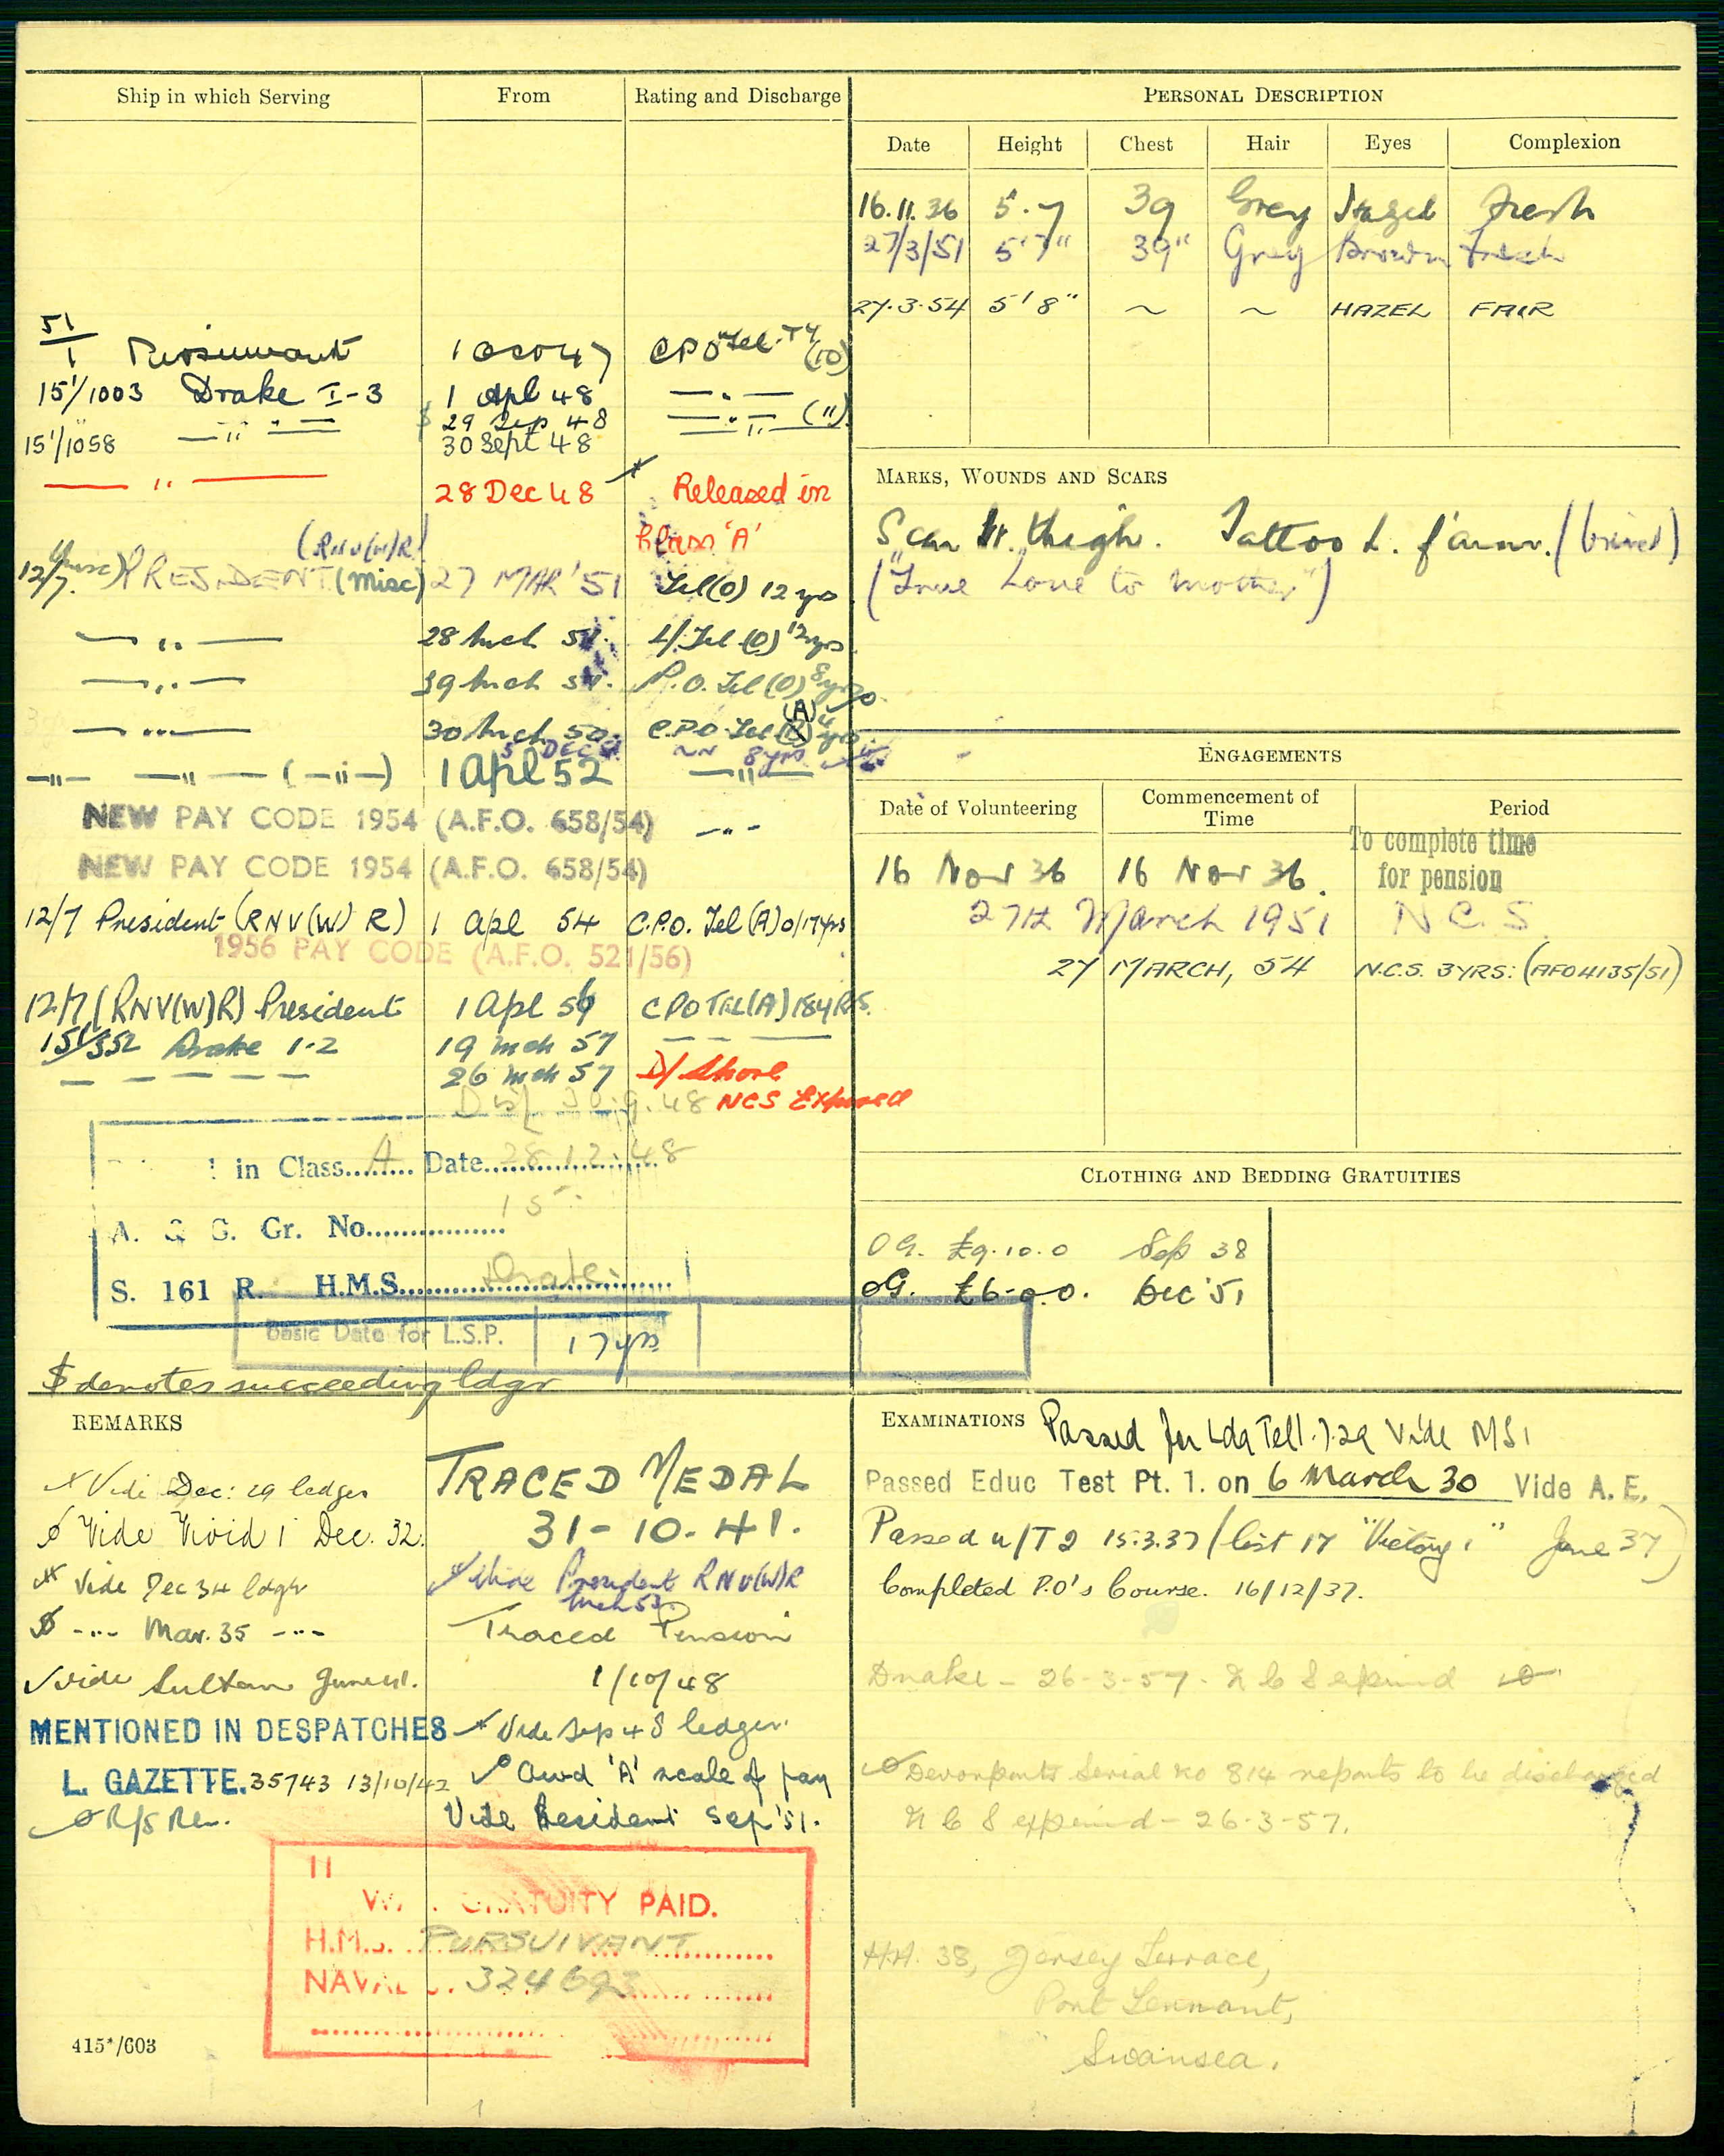 Ship in which Serving From Rating and Discharge
51/1 Pursuivant 1 Oct 47 CPO Tel. T4 (10)
15¹/1003 Drake I-3 1 Apl 48 — " —
— " — $ 29 Sep 48 — " — (")
15¹/1058 — " — 30 Sept 48 — " —
— " — 28 Dec 48 * Released in
Class 'A'
(RNV(W)R)
12/7 PRESIDENT (Misc) 27 MAR '51 Tel(O) 12 yrs
— " — 28 Mch 51. L/Tel (O) 12 yrs
— " — 29 Mch 51. P.O. Tel (O) 8 yrs
— " — 30 Mch P.O. Tel (A) 4 yrs
5 DEC 8 yrs
— " — — " — ( — " — ) 1 Apl 52 — " —
NEW PAY CODE 1954 (A.F.O. 658/54) — " —
NEW PAY CODE 1954 (A.F.O. 658/54)
12/7 President (RNV(W)R) 1 Apl 54 C.P.O. Tel (A) 0/17yrs
1956 PAY CODE (A.F.O. 521/56)
12/7 (RNV(W)R) President 1 Apl 56 CPO TEL(A) 18YRS.
15¹/352 Drake 1-2 19 Mch 57 — — —
— — — — — 26 Mch 57 D/ Shore
30.9.48 NCS Expired
in Class A Date 28.12.48
A. & G. Gr. No. 15
S. 161 R. H.M.S. Drake
Basic Date for L.S.P. 17 yrs
$ denotes succeeding ldgr
PERSONAL DESCRIPTION
Date Height Chest Hair Eyes Complexion
16.11.36 5.7 39 Grey Hazel Fresh
27/3/51 5'7" 39" Grey Brown Fresh
27.3.54 5'8" ~ ~ HAZEL FAIR
MARKS, WOUNDS AND SCARS
Scar thigh. Tattoo L. f'arm.
("True Love to Mother")
ENGAGEMENTS
Date of Volunteering Commencement of Time Period
16 Nov 36 16 Nov 36. To complete time
for pension
27th March 1951 N.C.S.
27 MARCH, 54 N.C.S. 3YRS: (AFO 4135/51)
CLOTHING AND BEDDING GRATUITIES
OG. £9.10.0 Sep 38
OG. £6-0.0. Dec '51
REMARKS
x Vide Dec: 29 ledger
ø Vide Vivid 1 Dec. 32.
** Vide Dec 34 ldgr
$ -"- Mar. 35 -"-
✓ vide Sultan June 41.
MENTIONED IN DESPATCHES
L. GAZETTE. 35743 13/10/42
TRACED MEDAL
31-10-41.
Vide President RNV(W)R
Mch 53.
Traced Pension
1/10/48
* Vide Sep 48 ledger.
Awd 'A' scale of pay
Vide President Sep '51.
WAR GRATUITY PAID.
H.M.S. PURSUIVANT
NAVAL 324693
415*/603
EXAMINATIONS Passed for Ldg Tel 1.7.29 Vide MS1
Passed Educ Test Pt. 1. on 6 March 30 Vide A.E.
Passed u/T 2 15.3.37 (list 17 "Victory 1" June 37)
Completed P.O's Course. 16/12/37.
Drake - 26-3-57. N C S expired
Devonports Serial No 814 reports to be discharged
N C S expired - 26-3-57.
H.A. 38, Jersey Terrace,
Port Tennant,
Swansea.